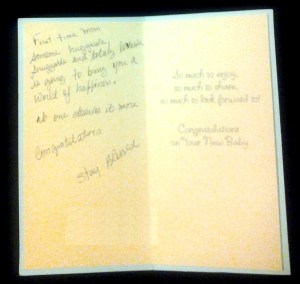 First time mom
Someone huggable,
snuggable and totally lovable
is going to bring you a
World of happiness.
no one deserves it more
Congratulations
Stay Blessed
So much to enjoy,
so much to share,
so much to look forward to!
Congratulations
on Your New Baby